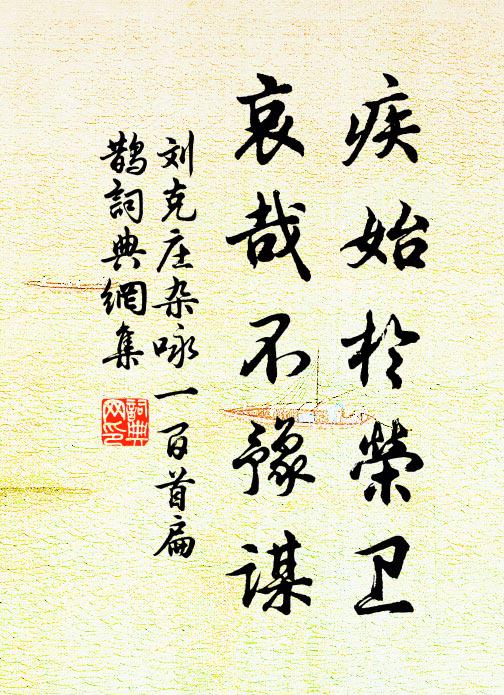 疾始於荣卫
哀哉不豫谋
刘克庄杂咏一百首扁
鹊词典網集
詞典
网印